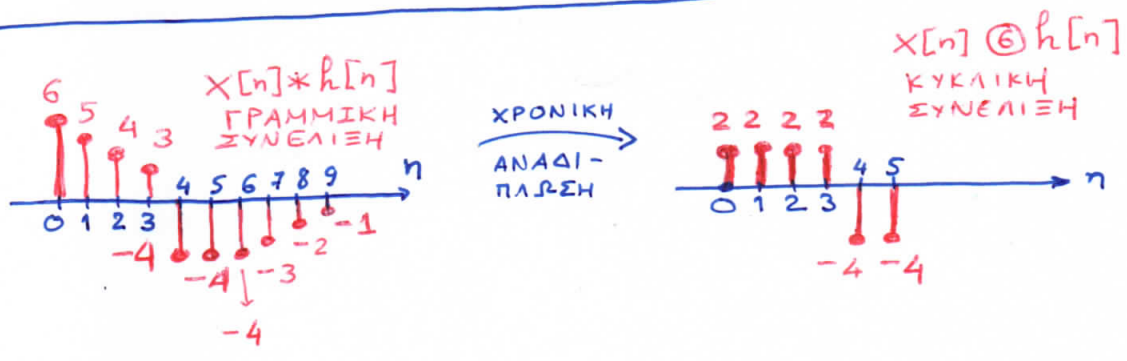 x[n] * h[n]
ΓΡΑΜΜΙΚΗ
ΣΥΝΕΛΙΞΗ
6
5
4
3
4 5 6 7 8 9
n
0 1 2 3
-4
-4
-4
-3
-2
-1
ΧΡΟΝΙΚΗ
ΑΝΑΔΙ-
ΠΛΩΣΗ
x[n] ⑥ h[n]
ΚΥΚΛΙΚΗ
ΣΥΝΕΛΙΞΗ
2 2 2 2
4 5
n
0 1 2 3
-4 -4